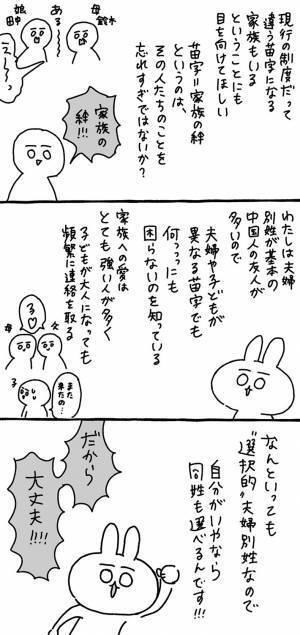 現行の制度だって
違う苗字になる
家族もいる
ということにも
目を向けてほしい
母
鈴木
ある
娘
田中
え〜っ
苗字=家族の絆
というのは、
その人たちのことを
忘れすぎではないか?
家族の
絆!!!
わたしは夫婦
別姓が基本の
中国人の友人が
多いので
夫婦や子どもが
異なる苗字でも
何っっっにも
困らないのを知っている
家族への愛は
とても強い人が多く
子どもが大人になっても
頻繁に連絡を取る
母
父
子
また
来たの…
なんといっても
"選択的"夫婦別姓なので
自分がいやなら
同姓も選べるんです!!!
だから
大丈夫!!!!